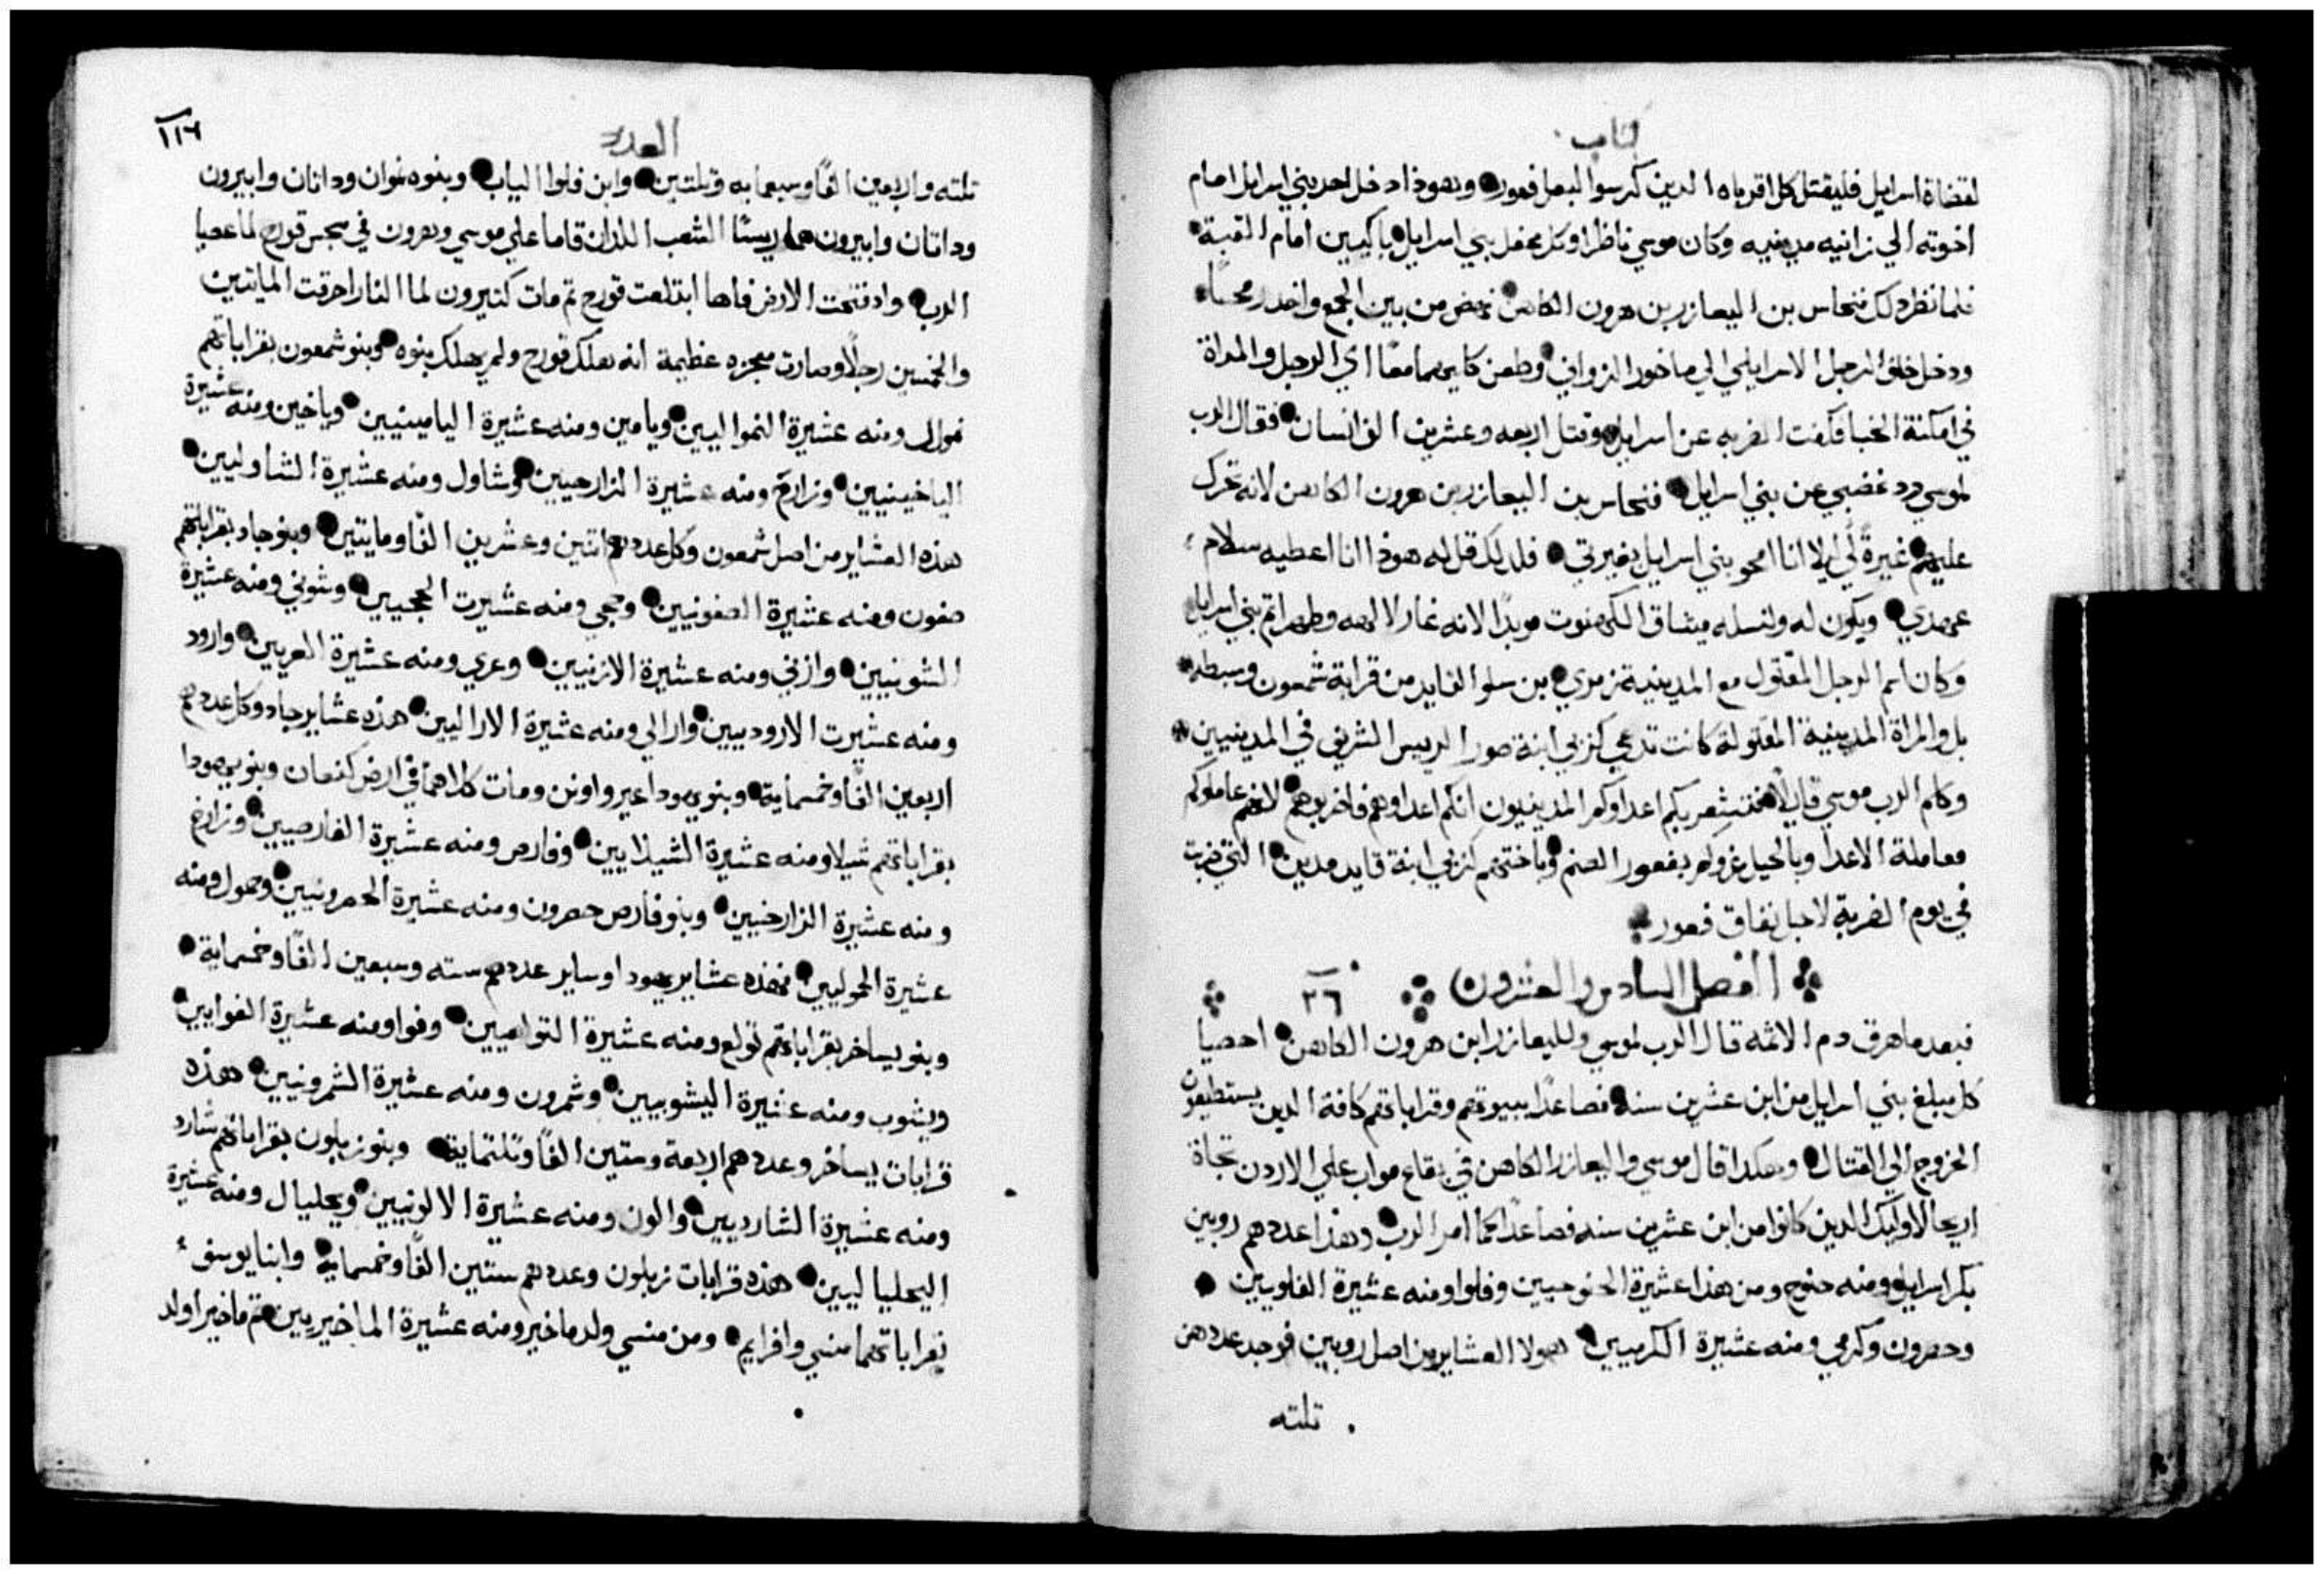 كتاب
لقضاة اسرايل فليقتل كل اقرباه الدين كرسوا لبعل فعور وهودا دخل احد بني اسرايل امام
اخوته الي زانيه مدينيه وكان موسي ناظرا وكل محفل بني اسرايل باكيين امام القبة
فلما نظر دلك فنحاس بن اليعازر بن هرون الكاهن نهض من بين الجمع واخد رمحًا
ودخل خلف الرجل الاسرايلي الي ماخور الزواني وطعن كليهما معًا اي الرجل والمراة
في امكنة الخبا فكفت الضربه عن اسرايل وقتل اربعه وعشرين الف انسان فقال الرب
لموسي رد غضبي عن بني اسرايل فنحاس بن اليعازر بن هرون الكاهن لانه تحرك
عليهم غيرةً لي ليلا انا امحو بني اسرايل بغيرتي فلدلك قل له هودا انا اعطيه سلام
عهدي ويكون له ولنسله ميثاق الكهنوت موبدًا لانه غار لالهه وطهر اتم بني اسرايل
وكان اسم الرجل المقتول مع المدينية زمري بن سلوا القايد من قرابة شمعون وسبطه
بل والمراة المدينية المقتولة كانت تدعي كزبي ابنة صور الرييس الشريف في المدينيين
وكلم الرب موسي قايلًا فتشعر بكم اعداوكم المدينيون انكم اعداوهم فاضربوهم لانهم عاملوكم
معاملة الاعدا وبالحيل غروكم بفعور الصنم وباختهم كزبي ابنة قايد مدين التي ضربت
في يوم الضربة لاجل نفاق فعور
الفصل السادس والعشرون ٢٦
فبعد ما هرق دم الاثمه قال الرب لموسي ولليعازر ابن هرون الكاهن احصيا
كل مبلغ بني اسرايل من ابن عشرين سنه فصاعدًا ببيوتهم وقراباتهم كافة الدين يستطيعون
الخروج الي القتال وهكدا قال موسي واليعازر الكاهن في بقاع مواب علي الاردن تجاة
اريحا لاوليك الدين كانوا من ابن عشرين سنه فصاعدًا كما امر الرب وهذا عددهم روبين
بكر اسرايل ومنه حنوح ومن هذا عشيرة الحنوحيين وفلوا ومنه عشيرة الفلويين
وحصرون وكرمي ومنه عشيرة الكرميين هولا العشاير من اصل روبين فوجد عددهن
تلته
العدد
١١٦
تلته واربعين الفًا وسبعمايه وتلتين وابن فلوا الياب وبنوه نموان وداتان وابيرون
وداتان وابيرون هما ريسا الشعب اللدان قاما علي موسي وهرون في سجس قورح لما عصيا
الرب وادفتحت الارض فاها ابتلعت قورح تم مات كثيرون لما النار احرقت المايتين
والخمسين رجلًا وصارت معجزه عظيمة انه هلك قورح ولم يهلك بنوه وبنو شمعون بقراباتهم
نموال ومنه عشيرة النمواليين ويامين ومنه عشيرة اليامينيين وياخين ومنه عشيرة
الياخينيين وزارح ومنه عشيرة الزارحيين وشاول ومنه عشيرة الشاوليين
هذه العشاير من اصل شمعون وكل عددهم اتنين وعشرين الفًا ومايتين وبنو جاد بقراباتهم
صفون ومنه عشيرة الصفونيين وحجي ومنه عشيرت الحجيين وشوني ومنه عشيرة
الشونيين وازني ومنه عشيرة الازنيين وعري ومنه عشيرة العريين وارود
ومنه عشيرت الاروديين وارالي ومنه عشيرة الاراليين هذه عشاير جاد وكل عددهم
اربعين الفًا وخمسماية وبنو يهودا عير واونن ومات كلاهما في ارض كنعان وبنو يهودا
بقراباتهم شيلا ومنه عشيرة الشيلايين وفارص ومنه عشيرة الفارصيين وزارح
ومنه عشيرة الزارحيين وبنو فارص حصرون ومنه عشيرة الحصرونيين وحمول ومنه
عشيرة الحموليين فهذه عشاير يهودا وساير عددهم سته وسبعين الفًا وخمسماية
وبنو يساخر بقراباتهم تولع ومنه عشيرة التولعيين وفوا ومنه عشيرة الفوايين
ويشوب ومنه عشيرة اليشوبيين وشمرون ومنه عشيرة الشمرونيين هذه
قرابات يساخر وعددهم اربعة وستين الفًا وتلتماية وبنو زبلون بقراباتهم شارد
ومنه عشيرة الشارديين والون ومنه عشيرة الالونيين ويحليال ومنه عشيرة
اليحلياليين هذه قرابات زبلون وعددهم ستين الفًا وخمسماية وابنا يوسف
بقراباتهما منسي وافرايم ومن منسي ولد ماخير ومنه عشيرة الماخيريين تم ماخير اولد